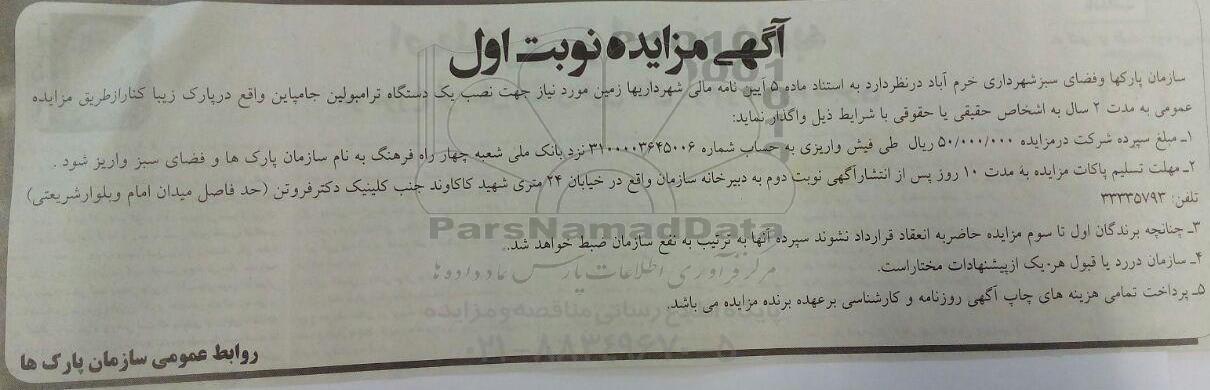 آگهی مزایده نوبت اول
سازمان پارکها وفضای سبزشهرداری خرم آباد درنظردارد به استناد ماده ۵ آیین نامه مالی شهرداریها زمین مورد نیاز جهت نصب یک دستگاه ترامبولین جامپاین واقع درپارک زیبا کنارازطریق مزایده
عمومی به مدت ۲ سال به اشخاص حقیقی یا حقوقی با شرایط ذیل واگذار نماید:
۱ـ مبلغ سپرده شرکت درمزایده ۵۰/۰۰۰/۰۰۰ ریال طی فیش واریزی به حساب شماره ۳۱۰۰۰۰۳۶۴۵۰۰۶ نزد بانک ملی شعبه چهار راه فرهنگ به نام سازمان پارک ها و فضای سبز واریز شود .
۲ـ مهلت تسلیم پاکات مزایده به مدت ۱۰ روز پس از انتشارآگهی نوبت دوم به دبیرخانه سازمان واقع در خیابان ۲۴ متری شهید کاکاوند جنب کلینیک دکترفروتن (حد فاصل میدان امام وبلوارشریعتی)
تلفن: ۳۳۳۳۵۷۹۳
۳ـ چنانچه برندگان اول تا سوم مزایده حاضربه انعقاد قرارداد نشوند سپرده آنها به ترتیب به نفع سازمان ضبط خواهد شد.
۴ـ سازمان دررد یا قبول هر یک ازپیشنهادات مختاراست.
۵ـ پرداخت تمامی هزینه های چاپ آگهی روزنامه و کارشناسی برعهده برنده مزایده می باشد.
روابط عمومی سازمان پارک ها
ParsNamadData
مرکز فرآوری اطلاعات پارس نماد داده ها
پایگاه اطلاع رسانی مناقصه و مزایده
۰۲۱-۸۸۳۴۹۶۷۰-۵